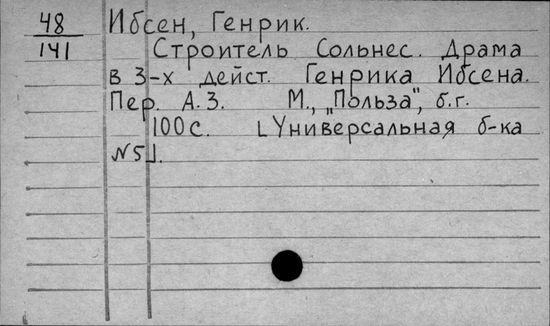 48
141
Ибсен, Генрик.
Строитель Сольнес. Драма
в 3-х дейст. Генрика Ибсена.
Пер. А.З. М., „Польза", б.г.
100с. [Универсальная б-ка
№5].